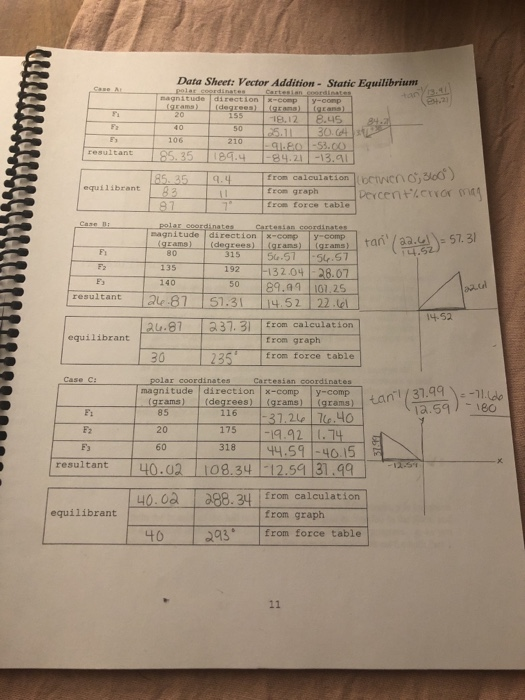 Data Sheet: Vector Addition - Static Equilibrium
Case A:
polar coordinates Cartesian coordinates
magnitude (grams) direction (degrees) x-comp (grams) y-comp (grams)
F₁ 20 155 -18.12 8.45
F₂ 40 50 25.11 30.64
F₃ 106 210 -91.80 -53.00
resultant 85.35 189.4 -84.21 -13.91
equilibrant
85.35 9.4 from calculation (between 0; 360°)
83 11 from graph Percent % error mag
87 7° from force table
Case B:
polar coordinates Cartesian coordinates
magnitude (grams) direction (degrees) x-comp (grams) y-comp (grams)
F₁ 80 315 56.57 -56.57
F₂ 135 192 -132.04 -28.07
F₃ 140 50 89.99 107.25
resultant 26.87 57.31 14.52 22.61
tan⁻¹(22.61/14.52) = 57.31
22.61
14.52
equilibrant
26.87 237.31 from calculation
from graph
30 235° from force table
Case C:
polar coordinates Cartesian coordinates
magnitude (grams) direction (degrees) x-comp (grams) y-comp (grams)
F₁ 85 116 -37.26 76.40
F₂ 20 175 -19.92 1.74
F₃ 60 318 44.59 -40.15
resultant 40.02 108.34 -12.59 37.99
tan⁻¹(37.99/12.59) = -71.66
- 180
37.99
-12.59
x
equilibrant
40.02 288.34 from calculation
from graph
40 293° from force table
11